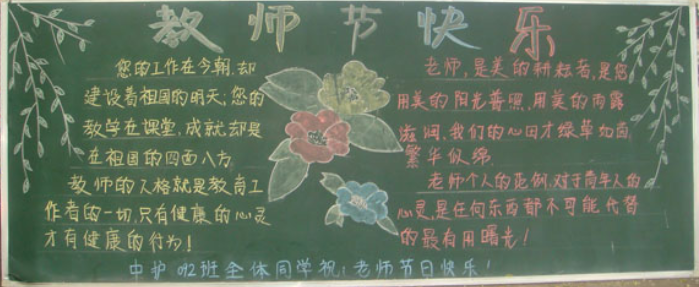 教师节快乐
您的工作在今朝,却
建设着祖国的明天;您的
教学在课堂,成就却是
在祖国的四面八方
教师的人格就是教育工
作者的一切,只有健康的心灵
才有健康的行为!
老师,是美的耕耘者,是您
用美的阳光普照,用美的雨露
滋润,我们的心田才绿草如茵
繁华似锦
老师个人的范例,对于青年人的
心灵,是任何东西都不可能代替
的最有用曙光!
中护012班全体同学祝:老师节日快乐!